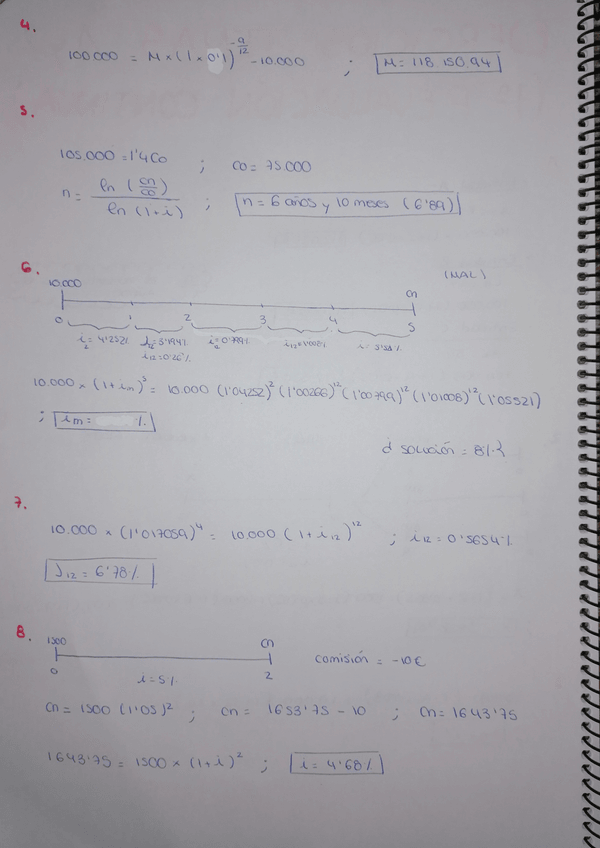 4.
100.000 = M × (1 × 0'1)^(-9/12) - 10.000 ; M = 118.150,94
5.
105.000 = 1'4 Co ; Co = 75.000
n = ln (Cn/Co) / ln (1+i) ; n = 6 años y 10 meses (6'89)
6.
(MAL)
10.000 Cn
0 1 2 3 4 5
i2 = 4'252% J12 = 3'194% i4 = 0'799% i = 5'521%
i12 = 0'266%
10.000 × (1+im)^5 = 10.000 (1'04252)^2 (1'00266)^12 (1'00799)^12 (1'01008)^12 (1'05521)
; im = %.
¿ solución = 8% ?
7.
10.000 × (1'017059)^4 = 10.000 (1 + i12)^12 ; i12 = 0'5654%
J12 = 6'78%
8.
1500 Cn comisión = -10€
0 i = 5% 2
Cn = 1500 (1'05)^2 ; Cn = 1653'75 - 10 ; Cn = 1643'75
1643'75 = 1500 × (1+i)^2 ; i = 4'68%